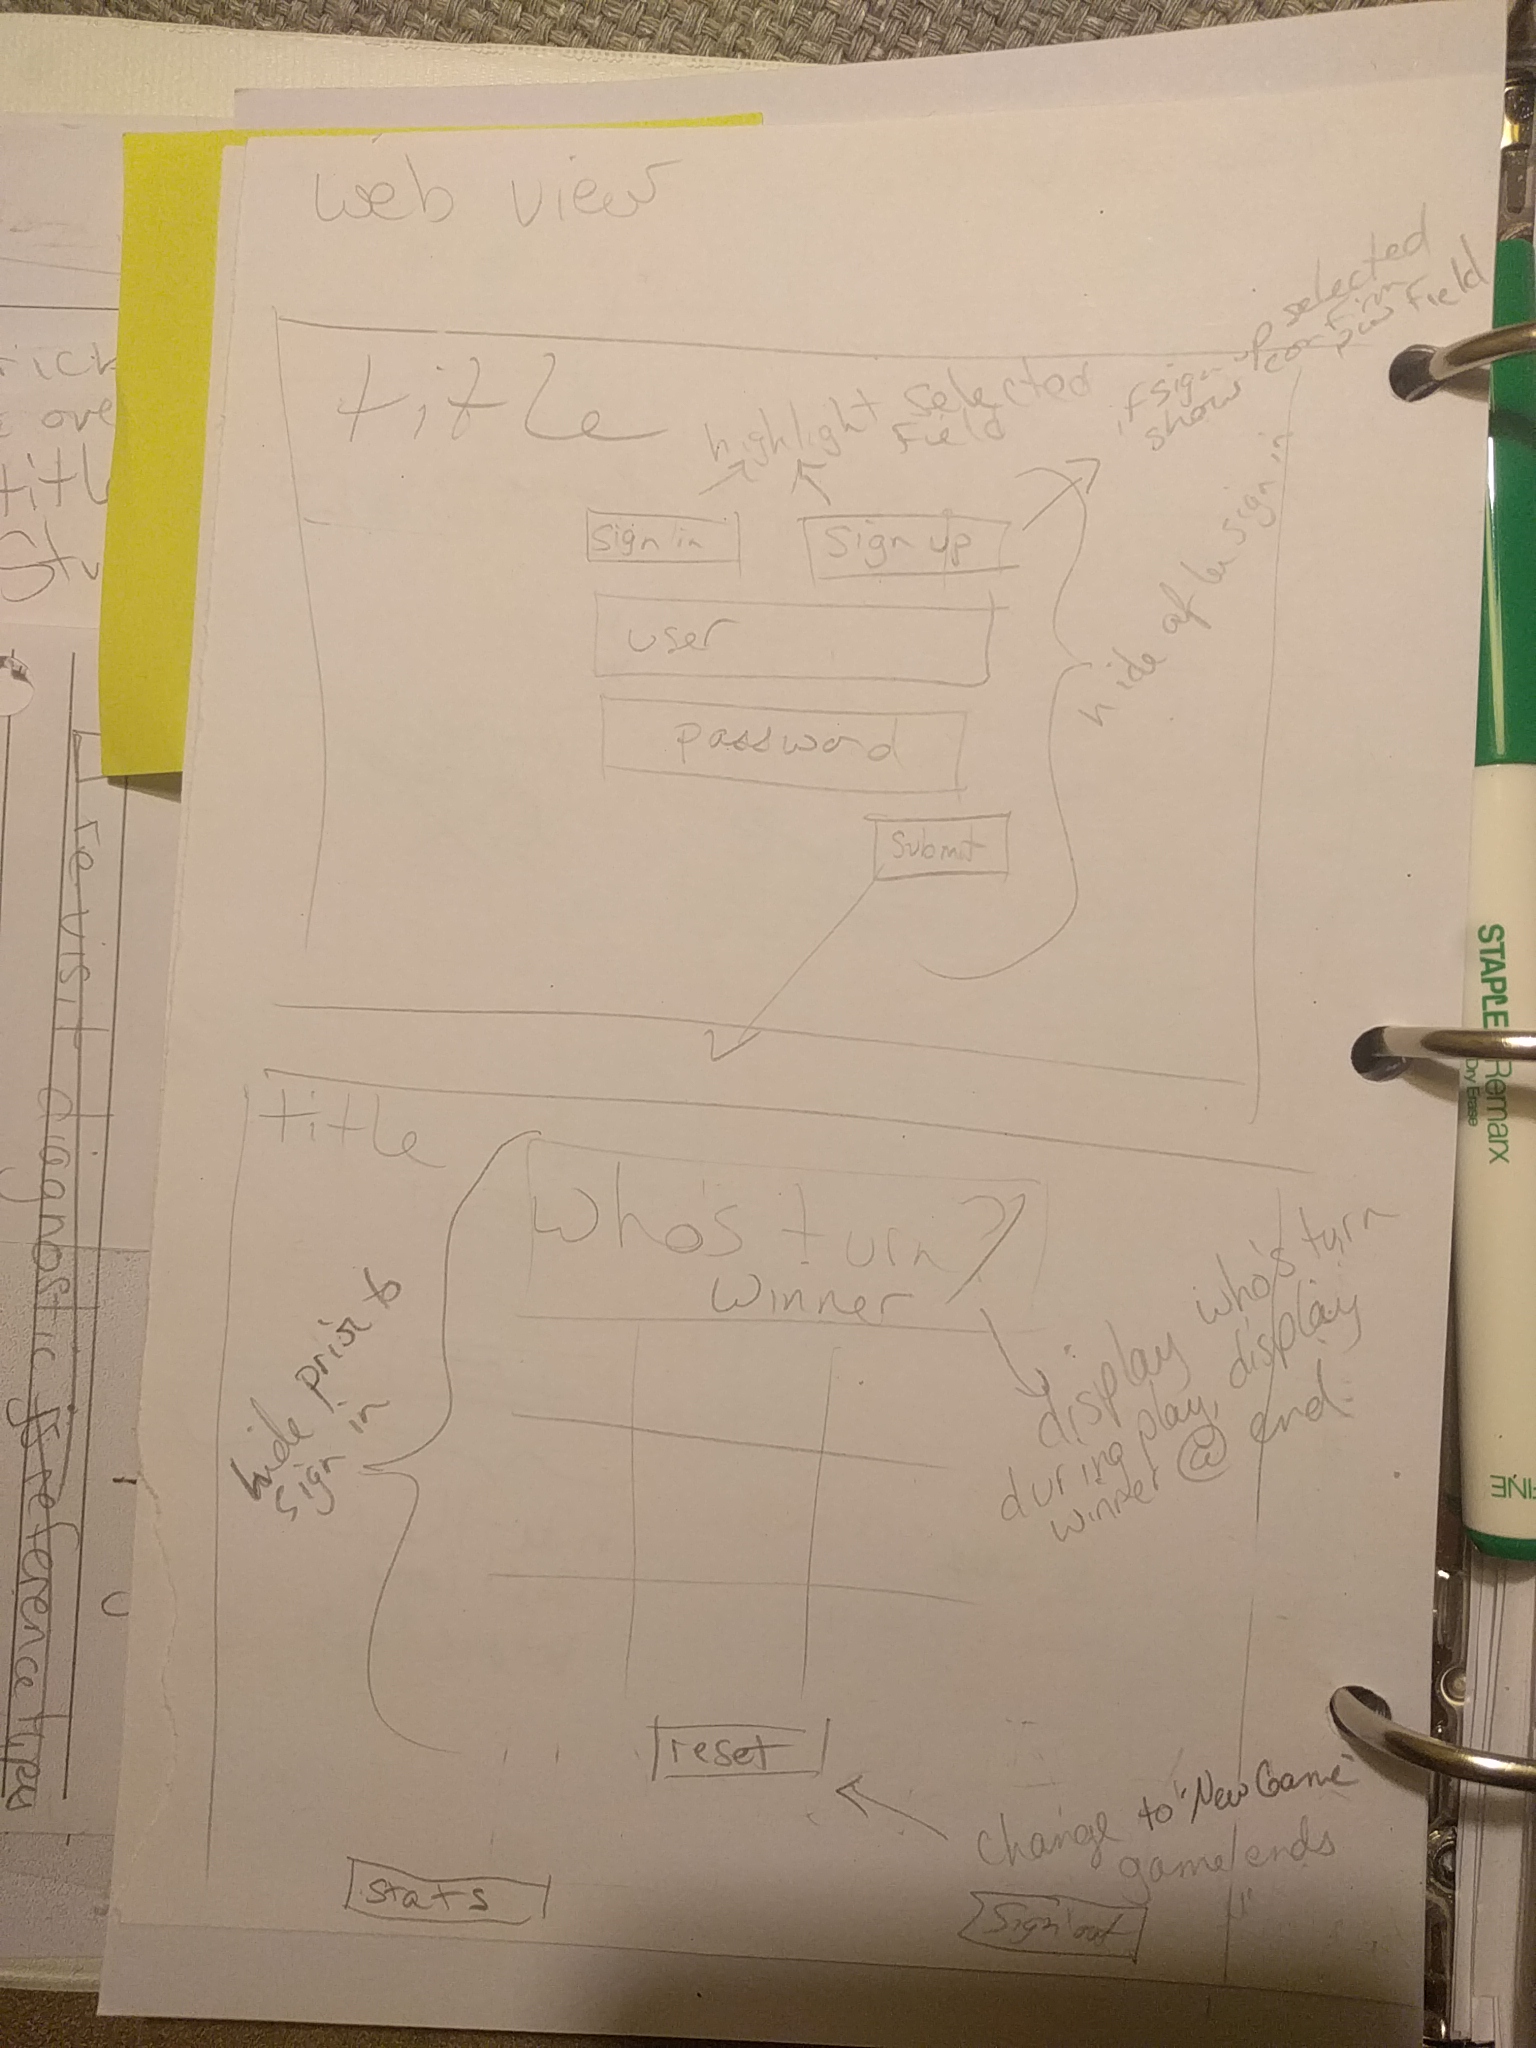 web view
title
highlight selected
field
if sign up selected
show confirm
pw field
sign in
sign up
user
password
submit
hide after sign in
title
Who's turn?
winner
hide prior to
sign in
display who's turn
during play, display
winner @ end
reset
change to "New Game"
game ends
stats
sign out
rick
over
title
revisit diagnostic & reference types
STAPLES
Remarx
Dry Erase